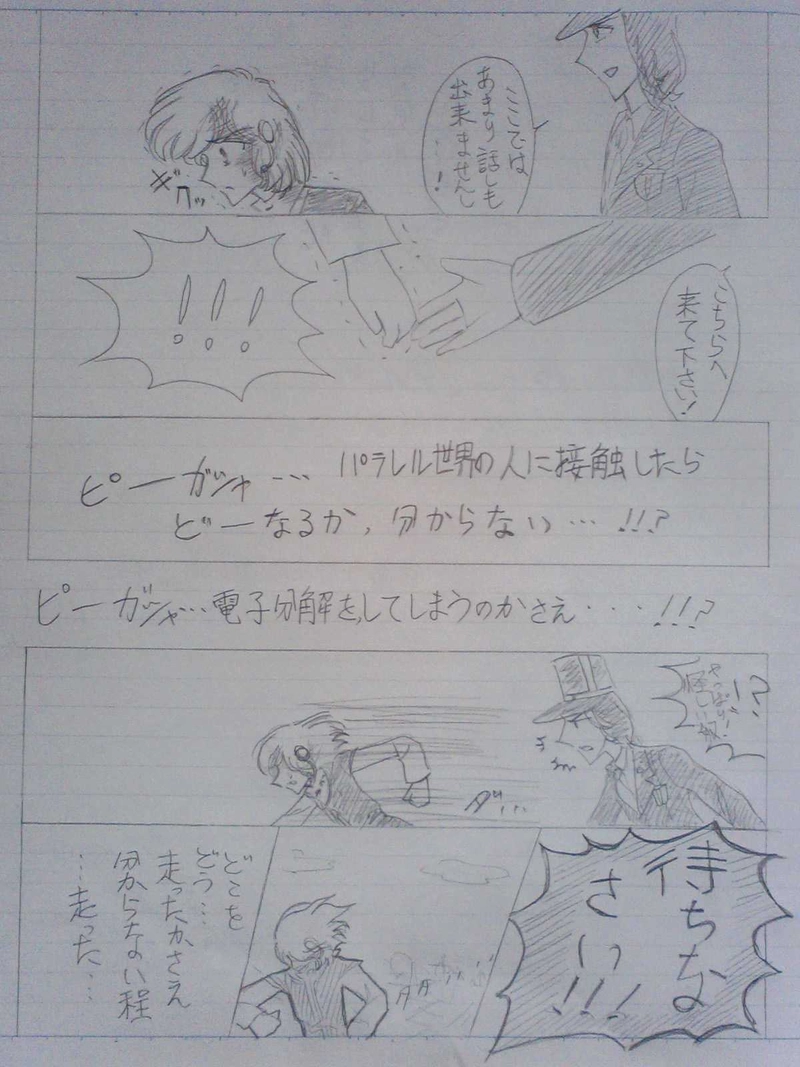 ここでは
あまり話しも
出来ませんし
…!
ギ
クッ
こちらへ
来て下さい!
!!!
ピーガシャ… パラレル世界の人に接触したら
どーなるか,分からない…!!?
ピーガシャ…電子分解をしてしまうのかさえ・・・!!?
!?
やっぱり!
怪しい奴!
ダ…
待ちな
さい!!!
どこを
どう…
走ったかさえ
分からない程
…走った…